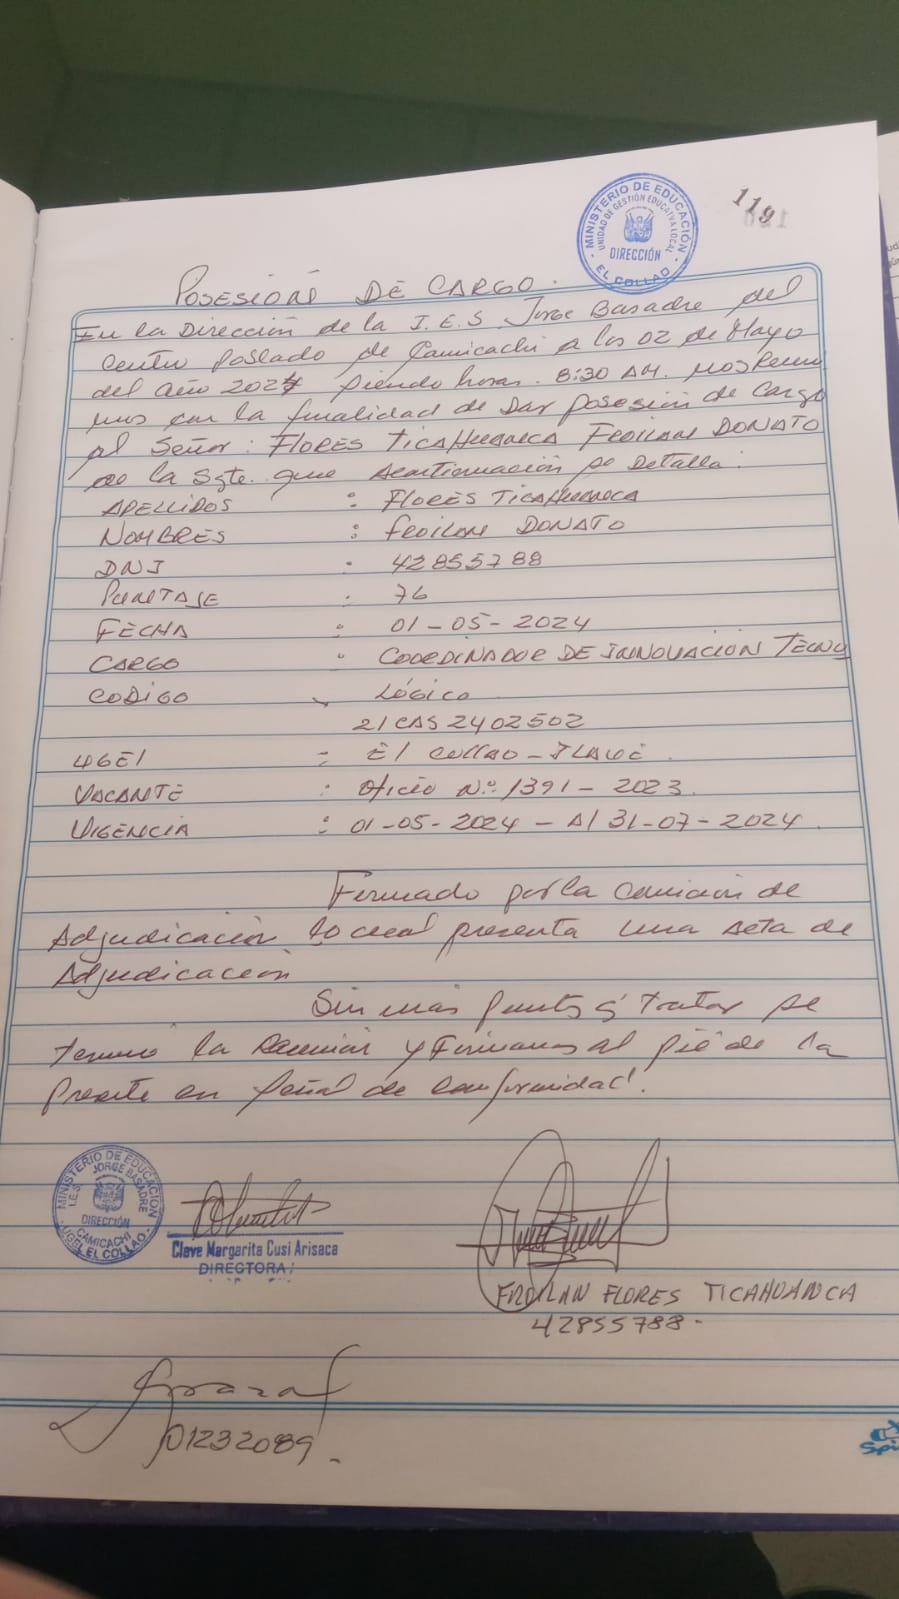 119
MINISTERIO DE EDUCACIÓN
UNIDAD DE GESTIÓN EDUCATIVA LOCAL
DIRECCIÓN
EL COLLAO
POSESIÓN DE CARGO.
En la Dirección de la I.E.S Jorge Basadre del
Centro Poblado de Camicachi a los 02 de Mayo
del año 2024 siendo horas. 8:30 AM. nos Reuni
mos con la finalidad de Dar posesión de Cargo
al Señor: FLORES TICAHUANCA FROILAN DONATO
la Sgte. que acontinuación se Detalla:
APELLIDOS : FLORES TICAHUANCA
NOMBRES : FROILAN DONATO
DNI : 42855788
PUNTAJE : 76
FECHA : 01-05-2024
CARGO : COORDINADOR DE INNOVACIÓN TECNO
CODIGO LÓGICO
21CAS2402502
UGEL : El COLLAO-ILAVE
VACANTE : Oficio N.º 1391-2023.
VIGENCIA : 01-05-2024 - Al 31-07-2024.
Firmado por la Comición de
Adjudicación presenta una acta de
Adjudicación
Sin más puntos a tratar se
termino la Reunión y Firmamos al pie de la
presente en señal de conformidad.
MINISTERIO DE EDUCACIÓN
I.E.S. JORGE BASADRE
DIRECCIÓN
CAMICACHI
UGEL EL COLLAO
Clave Margarita Cusi Arisaca
DIRECTORA
FROILAN FLORES TICAHUANCA
42855788-
01232089